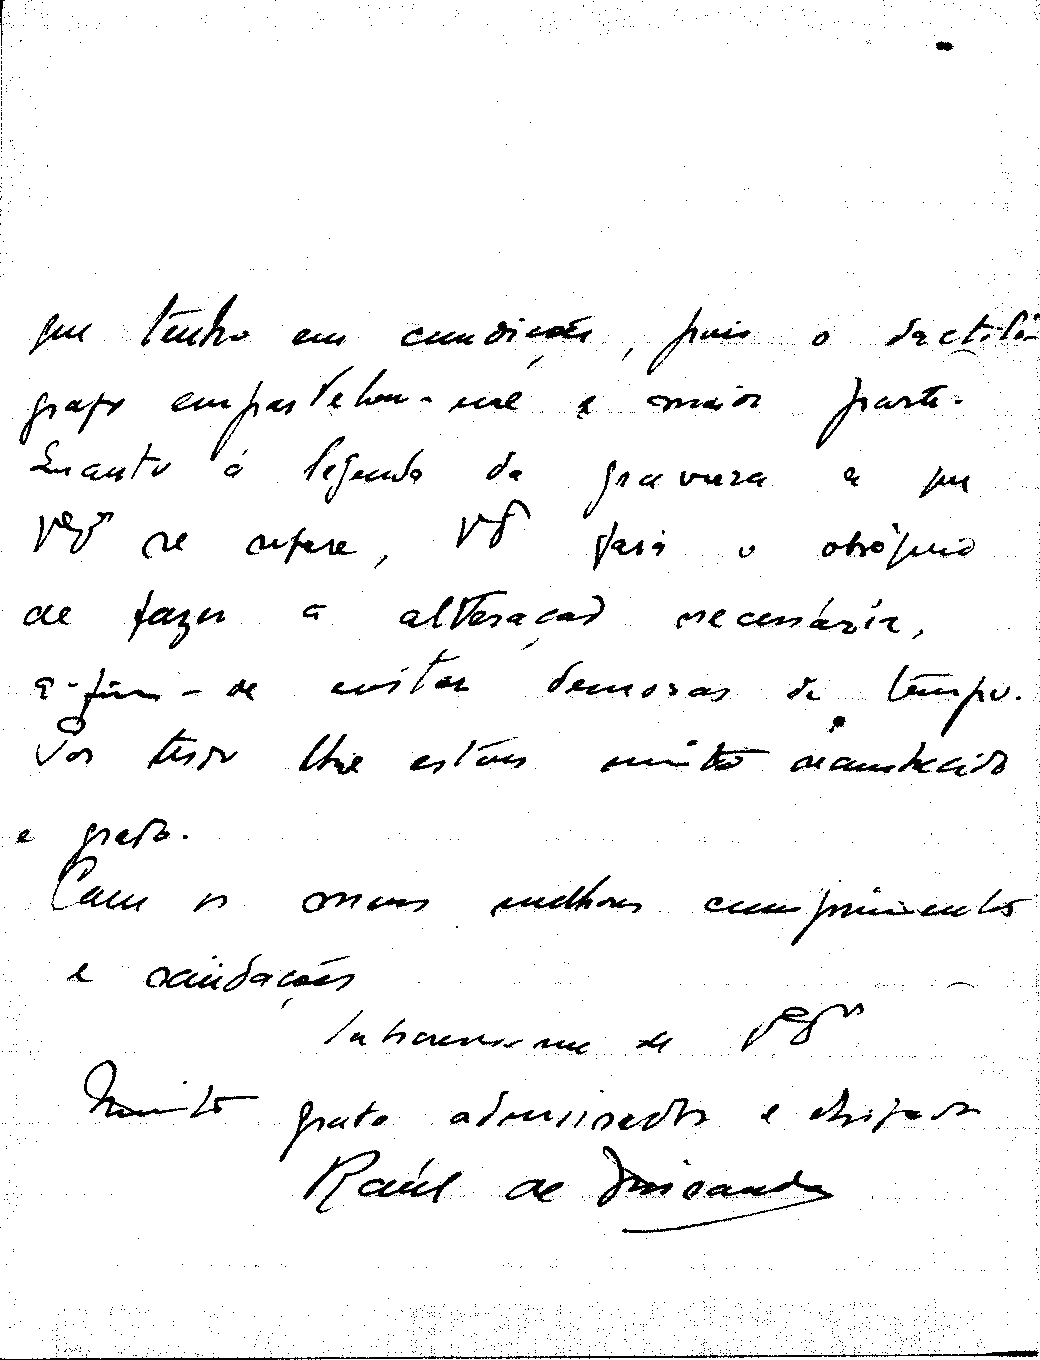 que tenho em condições, pois o dactiló-
grafo empastelou-me a maior parte.
Quanto á legenda da gravura a que
V. Ex.ª se refere, V. Ex.ª fará o obséquio
de fazer a alteração necessária,
a-fim-de evitar demoras de tempo.
Por tudo lhe estou muito reconhecido
e grato.
Com os meus melhores cumprimentos
e saudações
subscrevo-me de V. Ex.ª
Muito grato admirador e obrigado
Raúl de Miranda